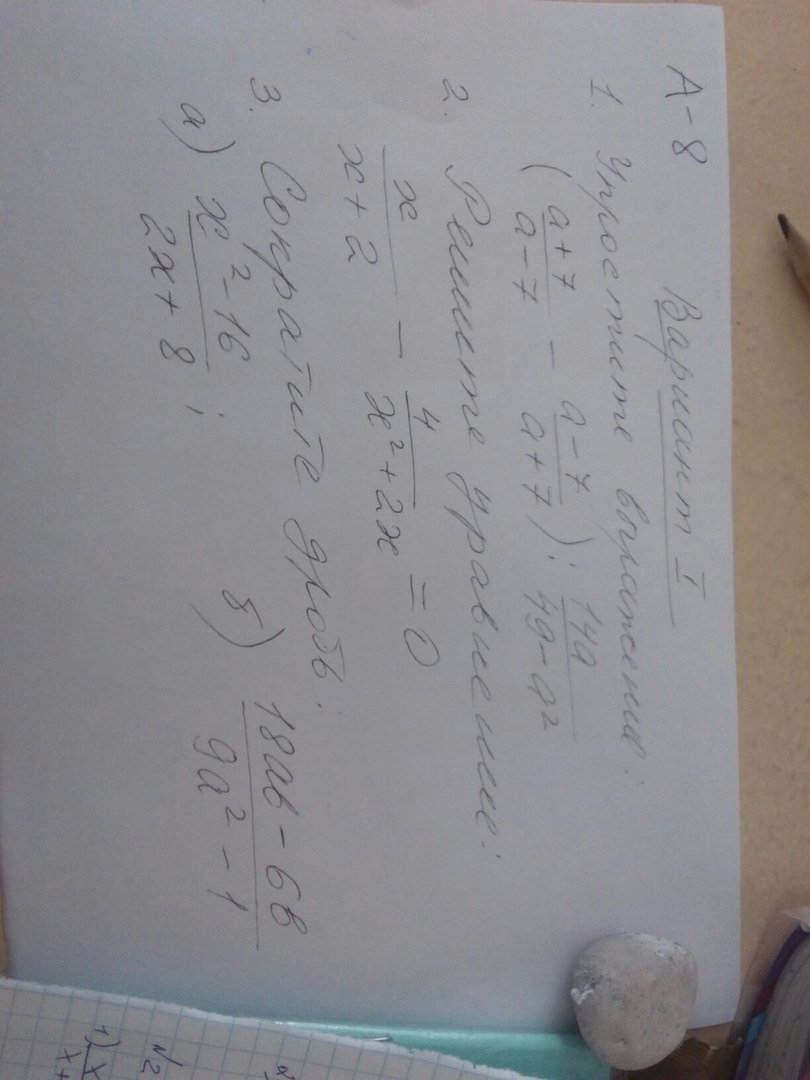 А-8
Вариант I
1. Упростите выражение:
(a+7/a-7 - a-7/a+7) : 14a/49-a²
2. Решите уравнение:
x/x+2 - 4/x²+2x = 0
3. Сократите дробь:
а) x²-16/2x+8 ; б) 18ab-6b/9a²-1
№2
1) x
x+